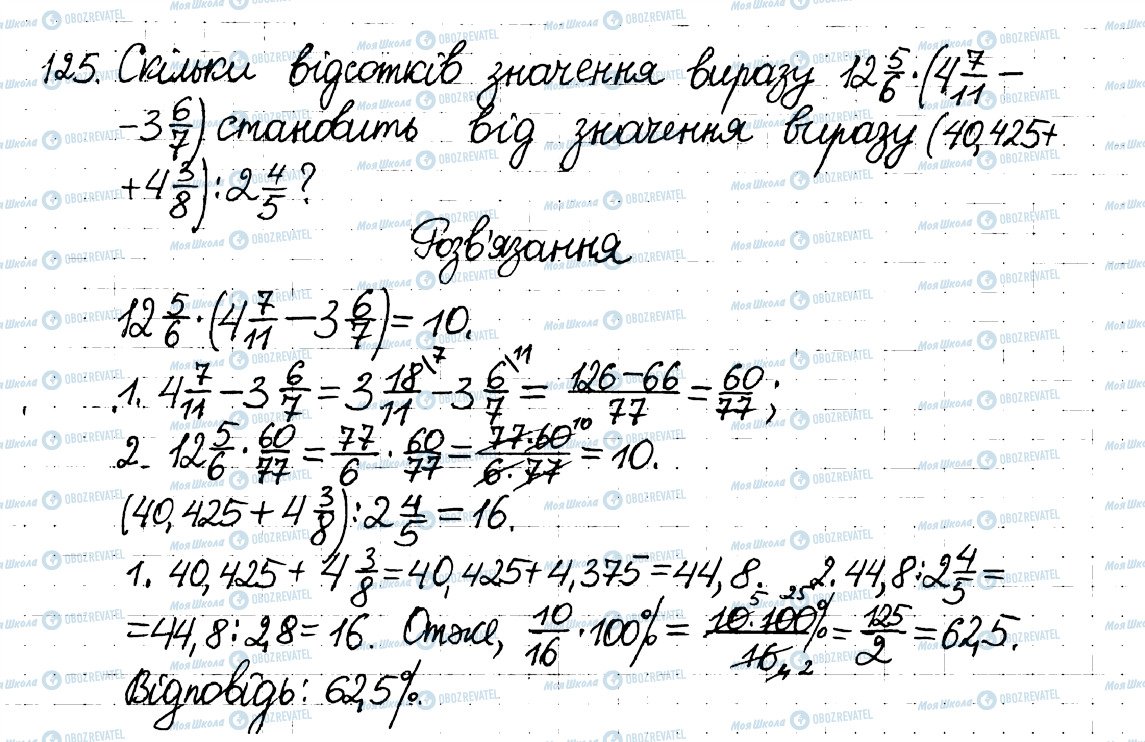 125. Скільки відсотків значення виразу 12 5/6 · (4 7/11 −
− 3 6/7) становить від значення виразу (40,425+
+ 4 3/8) : 2 4/5 ?
Розв'язання
12 5/6 · (4 7/11 − 3 6/7) = 10.
1. 4 7/11 − 3 6/7 = 3 18\7/11 − 3 6\11/7 = 126−66/77 = 60/77;
2. 12 5/6 · 60/77 = 77/6 · 60/77 = 77·60 10/6·77 = 10.
(40,425 + 4 3/8) : 2 4/5 = 16.
1. 40,425 + 4 3/8 = 40,425 + 4,375 = 44,8. 2. 44,8 : 2 4/5 =
= 44,8 : 2,8 = 16. Отже, 10/16 · 100% = 10 5 · 100 25/16 4 2 % = 125/2 = 62,5.
Відповідь: 62,5%.